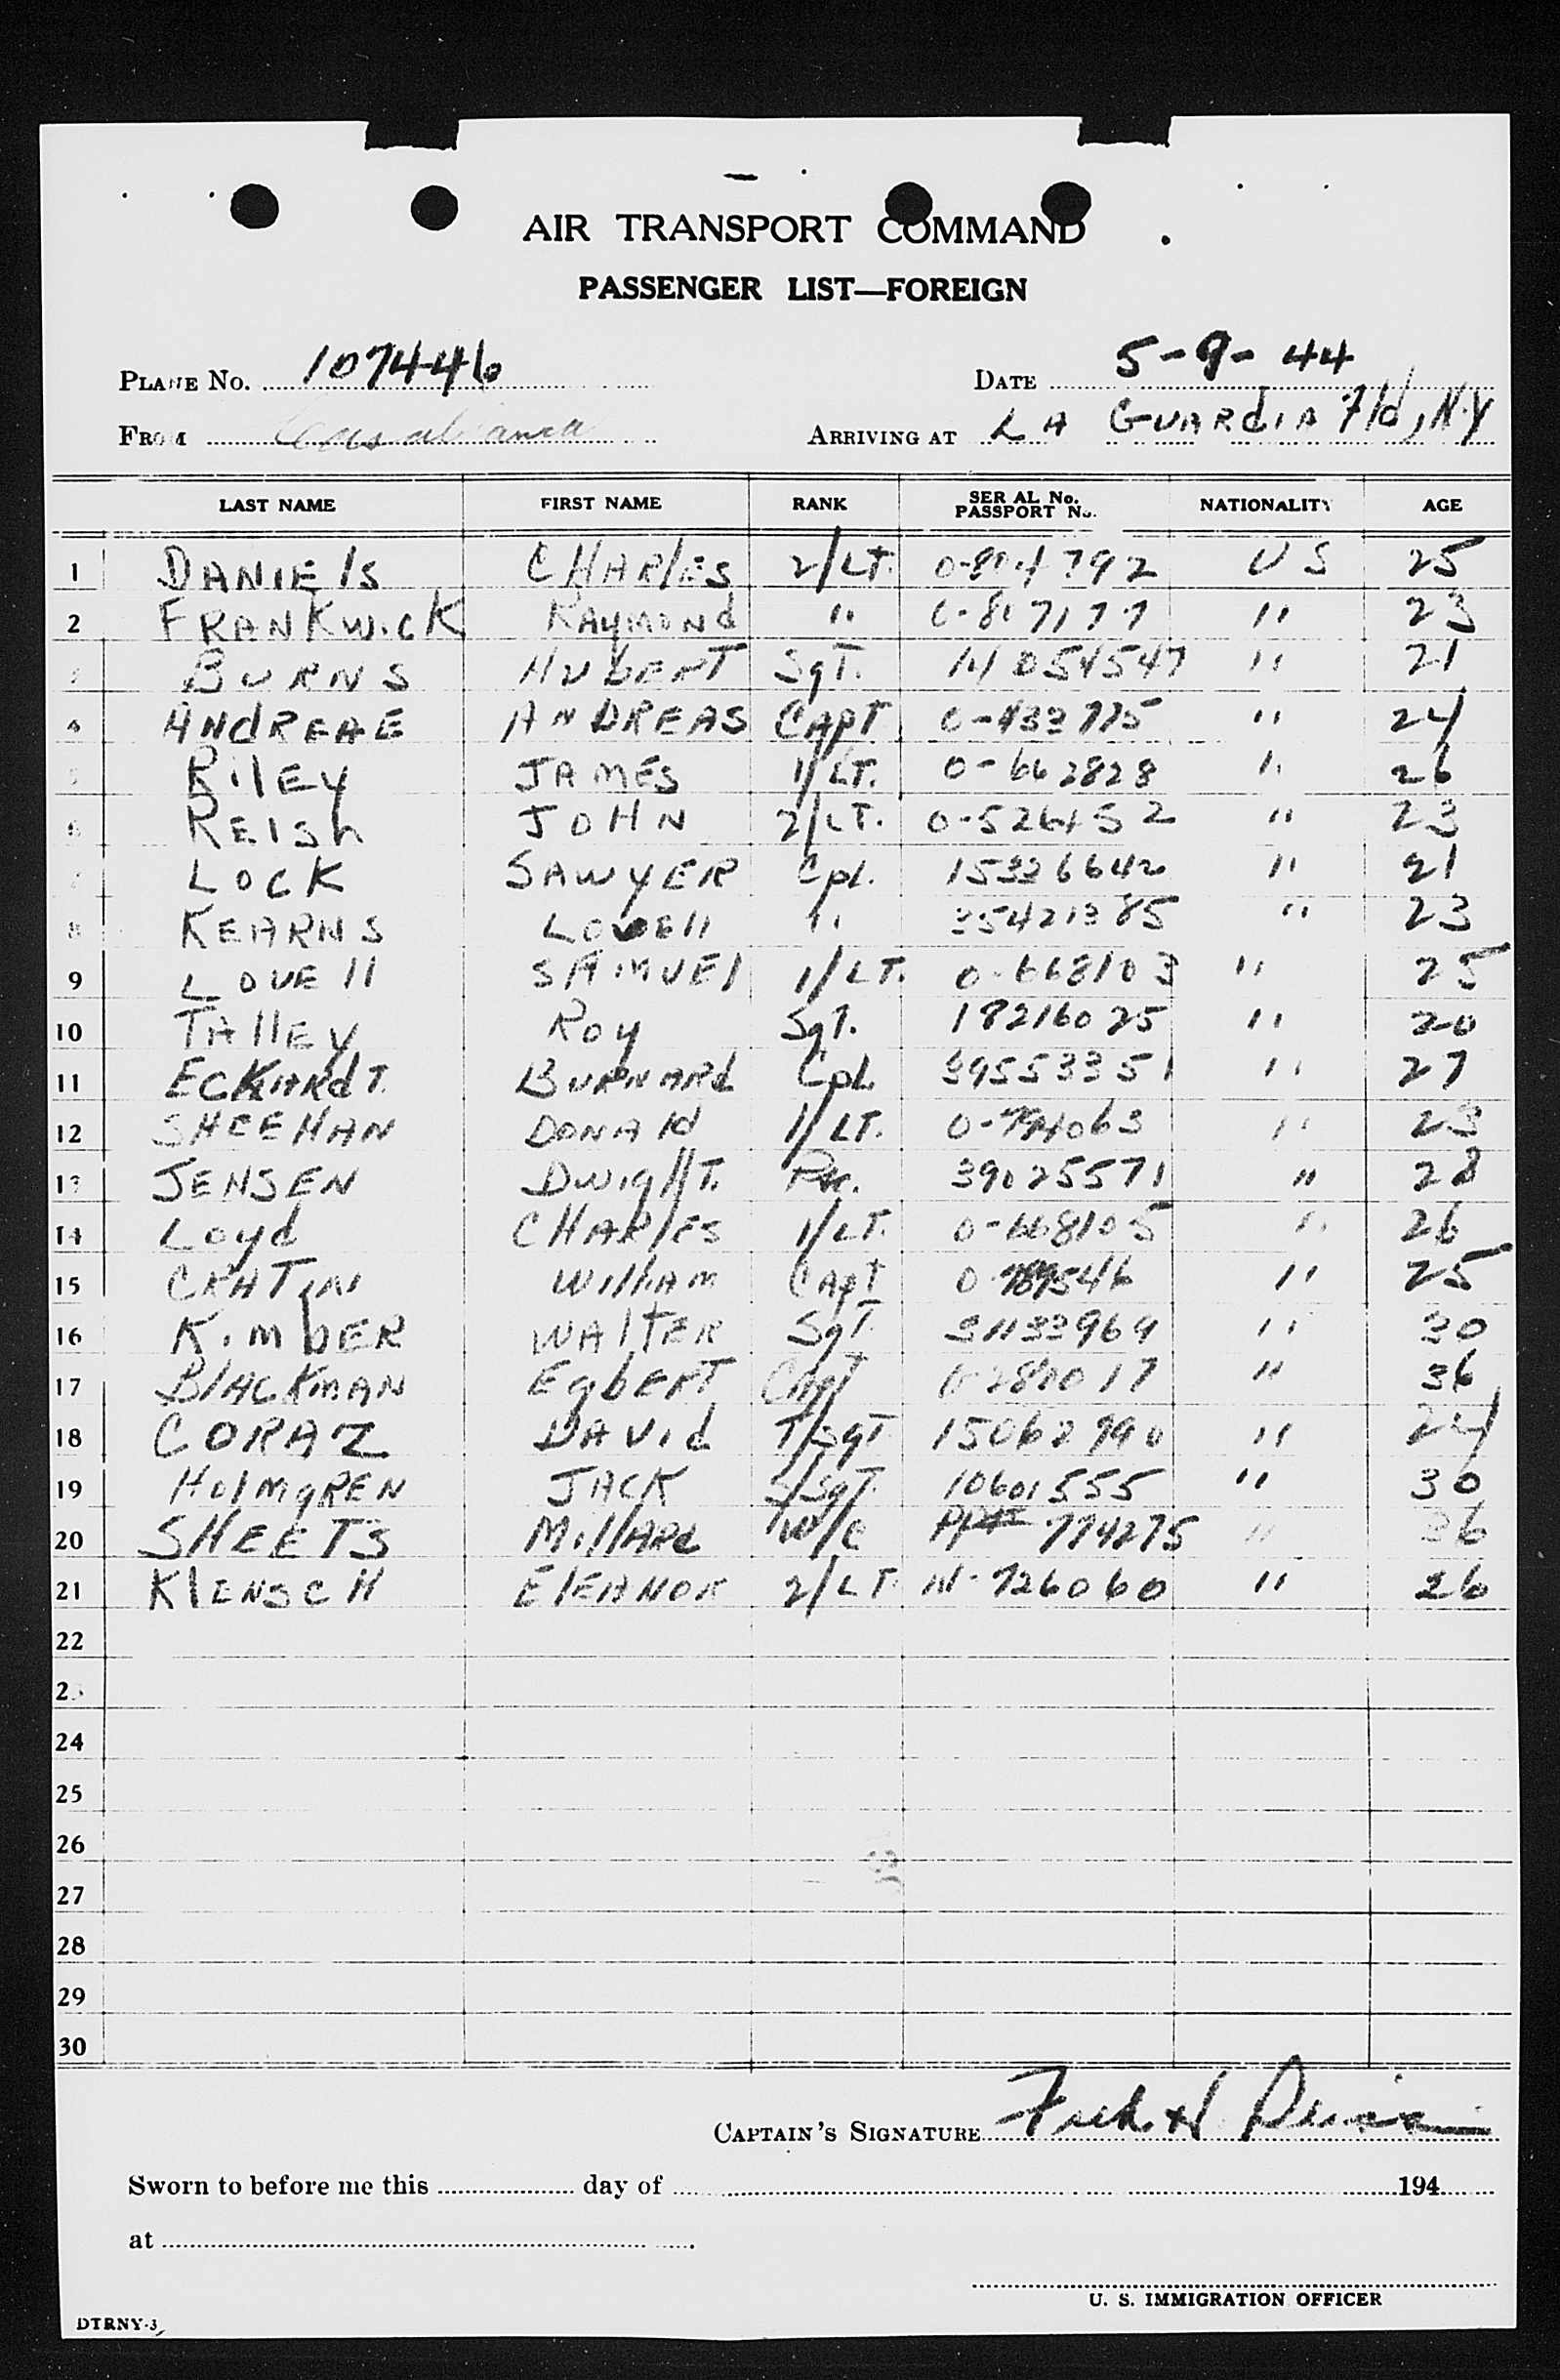 AIR TRANSPORT COMMAND
PASSENGER LIST—FOREIGN
PLANE No. 107446 DATE 5-9-44
FROM Casablanca ARRIVING AT LA GUARdiA Fld, N.Y
LAST NAME FIRST NAME RANK SERIAL No. PASSPORT No. NATIONALITY AGE
1 DANIEls CHARlES 2/LT. US 25
2 FRANKWicK RAYMONd " " 23
3 BURNS HUbERT SgT. 14054547 " 21
4 ANdREAE ANDREAS CAPT " 24
5 RilEy JAMES 1/LT. 0-662828 " 26
6 REISh JOHN 2/LT. 0-526452 " 23
7 LOCK SAWYER Cpl. 15336642 " 21
8 KEARNS LOVEll " 35421385 " 23
9 LOVEll SAMUEl 1/LT. 0-668103 " 25
10 TAllEy ROy SgT. 18216025 " 20
11 ECKHARdT. BURNARd Cpl. 39553351 " 27
12 SHEEHAN DONAld 1/LT. " 23
13 JENSEN DwigHT. 39025571 " 28
14 Loyd CHARlES 1/LT. 0-668105 " 26
15 William CApT " 25
16 KimbER WAlTER SgT. " 30
17 BlACKMAN EgbERT CApT " 36
18 CORAZ DAVid T/SgT " 24
19 HolmgREN JACK S/SgT. 10601555 " 30
20 SHEETS MillARd W/C 774275 " 36
21 KlENSCH ElEANOR 2/LT. N-726060 " 26
22
23
24
25
26
27
28
29
30
CAPTAIN'S SIGNATURE
Sworn to before me this day of 194
at
U. S. IMMIGRATION OFFICER
DTRNY-3